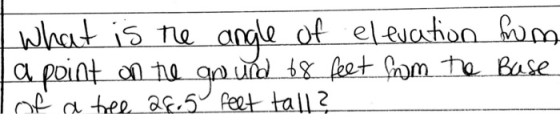 What is the angle of elevation from
a point on the ground 68 feet from the Base
of a tree 28.5 feet tall?